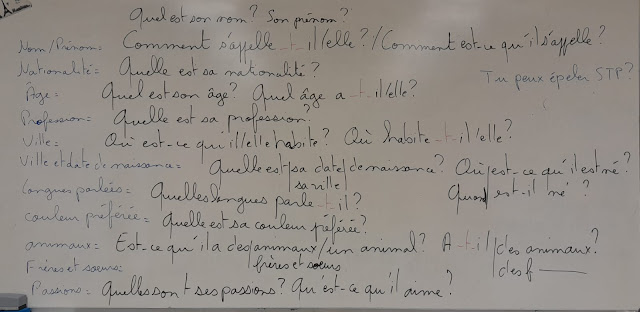 Quel est son nom? Son prénom?
Nom/Prénom= Comment s'appelle -t-il/elle?/Comment est-ce qu'il s'appelle?
Nationalité= Quelle est sa nationalité?
Tu peux épeler STP?
Âge= Quel est son âge? Quel âge a -t-il/elle?
Profession= Quelle est sa profession?
Ville= Où est-ce qu'il/elle habite? Où habite -t-il/elle?
Ville et date de naissance= Quelle est/sa date/de naissance? Où/est-ce qu'il est né?
sa ville Quand est-il né?
Langues parlées= Quelles langues parle -t-il?
couleur préférée= Quelle est sa couleur préférée?
animaux= Est-ce qu'il a des/animaux/un animal? A -t-il/des animaux?
Frères et soeurs= frères et soeurs des f
Passions= Quelles sont ses passions? Qu'est-ce qu'il aime?